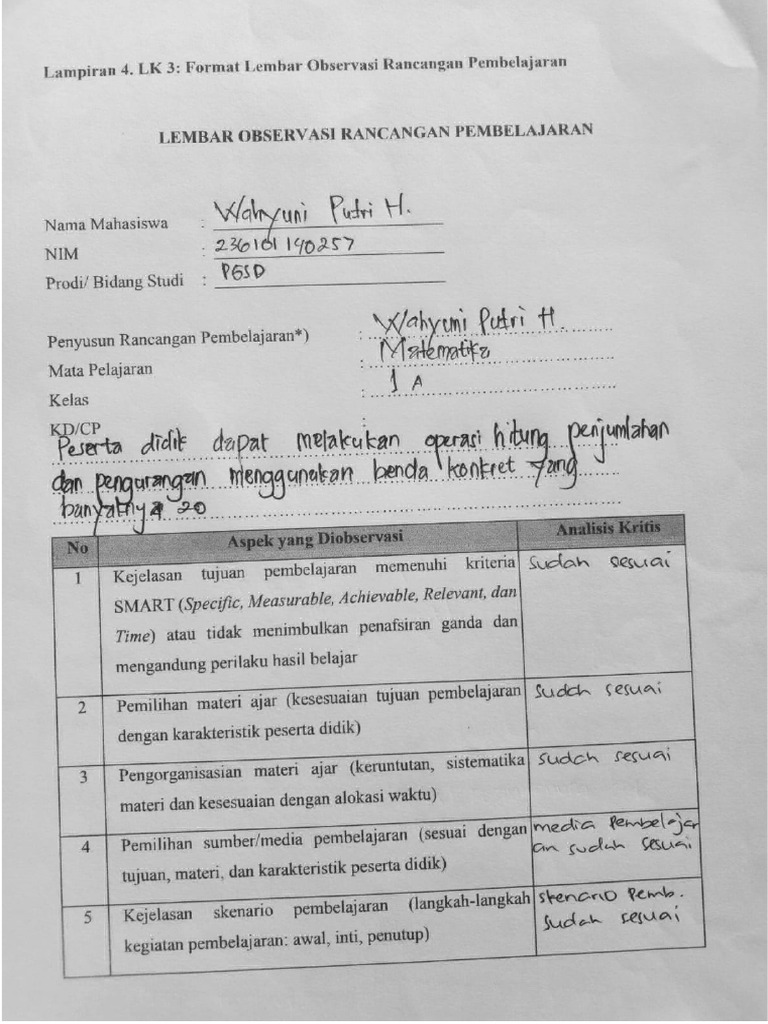 Lampiran 4. LK 3: Format Lembar Observasi Rancangan Pembelajaran
LEMBAR OBSERVASI RANCANGAN PEMBELAJARAN
Nama Mahasiswa : Wahyuni Putri H.
NIM : 236101140257
Prodi/ Bidang Studi : PGSD
Penyusun Rancangan Pembelajaran*) : Wahyuni Putri H.
Mata Pelajaran : Matematika
Kelas : 1 A
KD/CP :
Peserta didik dapat melakukan operasi hitung penjumlahan
dan pengurangan menggunakan benda konkret yang
banyaknya 20
No Aspek yang Diobservasi Analisis Kritis
1 Kejelasan tujuan pembelajaran memenuhi kriteria sudah sesuai
SMART (Specific, Measurable, Achievable, Relevant, dan
Time) atau tidak menimbulkan penafsiran ganda dan
mengandung perilaku hasil belajar
2 Pemilihan materi ajar (kesesuaian tujuan pembelajaran sudah sesuai
dengan karakteristik peserta didik)
3 Pengorganisasian materi ajar (keruntutan, sistematika sudah sesuai
materi dan kesesuaian dengan alokasi waktu)
4 Pemilihan sumber/media pembelajaran (sesuai dengan media Pembelajar
tujuan, materi, dan karakteristik peserta didik) an sudah sesuai
5 Kejelasan skenario pembelajaran (langkah-langkah skenario Pemb.
kegiatan pembelajaran: awal, inti, penutup) sudah sesuai